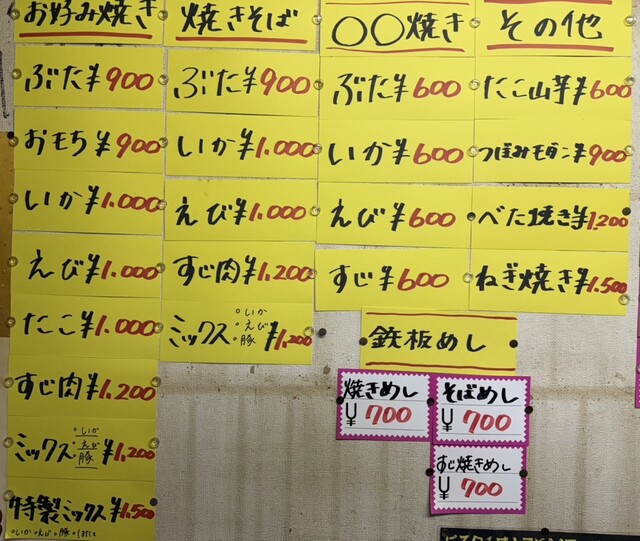 お好み焼き
ぶた¥900
おもち¥900
いか¥1.000
えび¥1.000
たこ¥1.000
すじ肉¥1.200
ミックス 。いか 。えび 。豚 ¥1.200
特製ミックス¥1.500
焼きそば
ぶた¥900
いか¥1.000
えび¥1.000
すじ肉¥1.200
ミックス 。いか 。えび 。豚 ¥1.200
〇〇焼き
ぶた¥600
いか¥600
えび¥600
すじ¥600
その他
たこ山芋¥600
つぼみモダン¥900
べた焼き¥1.200
ねぎ焼き¥1.500
鉄板めし
焼きめし
¥700
そばめし
¥700
すじ焼きめし
¥700